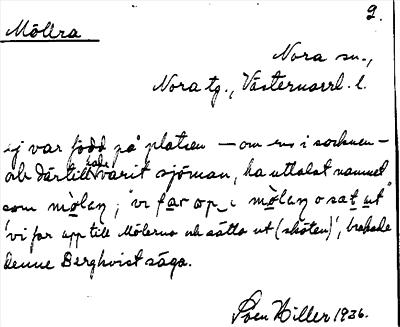 2.
Möllra
Nora sn.,
Nora tg., Västernorrl. l.
ej var född på platsen — om ens i socknen —
och därtill hade varit sjöman, ha uttalat namnet
som mòlaṇ; "vi far op i mòlaṇ o sat ut"
'vi far upp till Mölarna och sätta ut (sköten)', brukade
denne Berghvist säga.
Sven Hiller 1936.